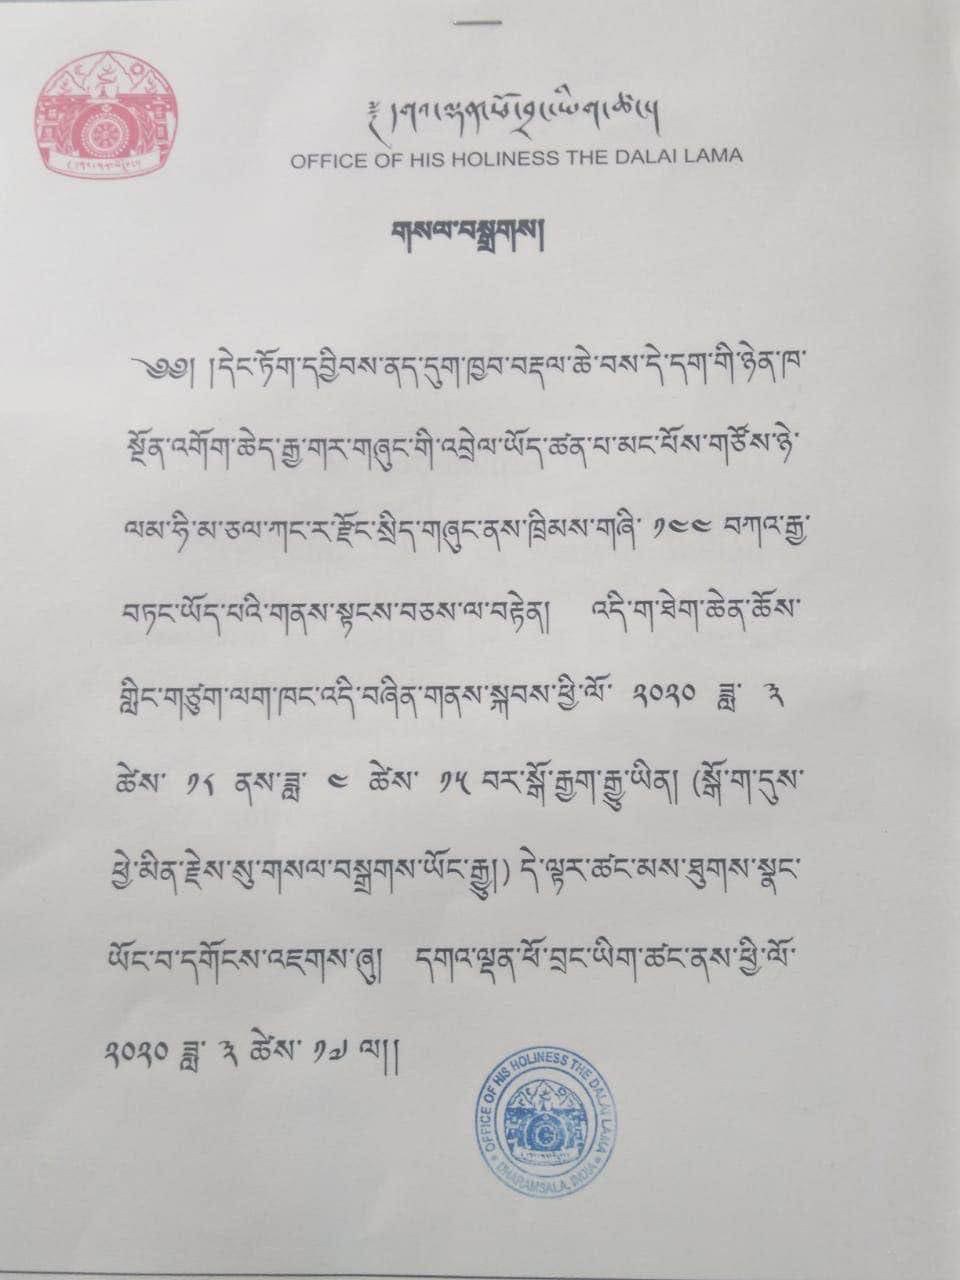 ༄༅། །དགའ་ལྡན་ཕོ་བྲང་ཡིག་ཚང་།
OFFICE OF HIS HOLINESS THE DALAI LAMA
གསལ་བསྒྲགས།
༄༅། །དེང་ཏོག་དབྱིབས་ནད་དུག་ཁྱབ་བརྡལ་ཆེ་བས་དེ་དག་གི་ཉེན་ཁ་
སྔོན་འགོག་ཆེད་རྒྱ་གར་གཞུང་གི་འབྲེལ་ཡོད་ཚན་པ་མང་པོས་གཙོས་ཉེ་
ལམ་ཧི་མ་ཅལ་ཀང་ར་རྫོང་སྲིད་གཞུང་ནས་ཁྲིམས་གཞི་ ༡༤༤ བཀའ་རྒྱ་
བཏང་ཡོད་པའི་གནས་སྟངས་བཅས་ལ་བརྟེན། འདི་ག་ཐེག་ཆེན་ཆོས་
གླིང་གཙུག་ལག་ཁང་འདི་བཞིན་གནས་སྐབས་ཕྱི་ལོ་ ༢༠༢༠ ཟླ་ ༣
ཚེས་ ༡༨ ནས་ཟླ་ ༤ ཚེས་ ༡༥ བར་སྒོ་རྒྱག་རྒྱུ་ཡིན། (སྒོ་ག་དུས་
ཕྱེ་མིན་རྗེས་སུ་གསལ་བསྒྲགས་ཡོང་རྒྱུ།) དེ་ལྟར་ཚང་མས་ཐུགས་སྣང་
ཡོང་བ་དགོངས་འཇགས་ཞུ། དགའ་ལྡན་ཕོ་བྲང་ཡིག་ཚང་ནས་ཕྱི་ལོ་
༢༠༢༠ ཟླ་ ༣ ཚེས་ ༡༧ ལ།།
OFFICE OF HIS HOLINESS THE DALAI LAMA
DHARAMSALA, INDIA